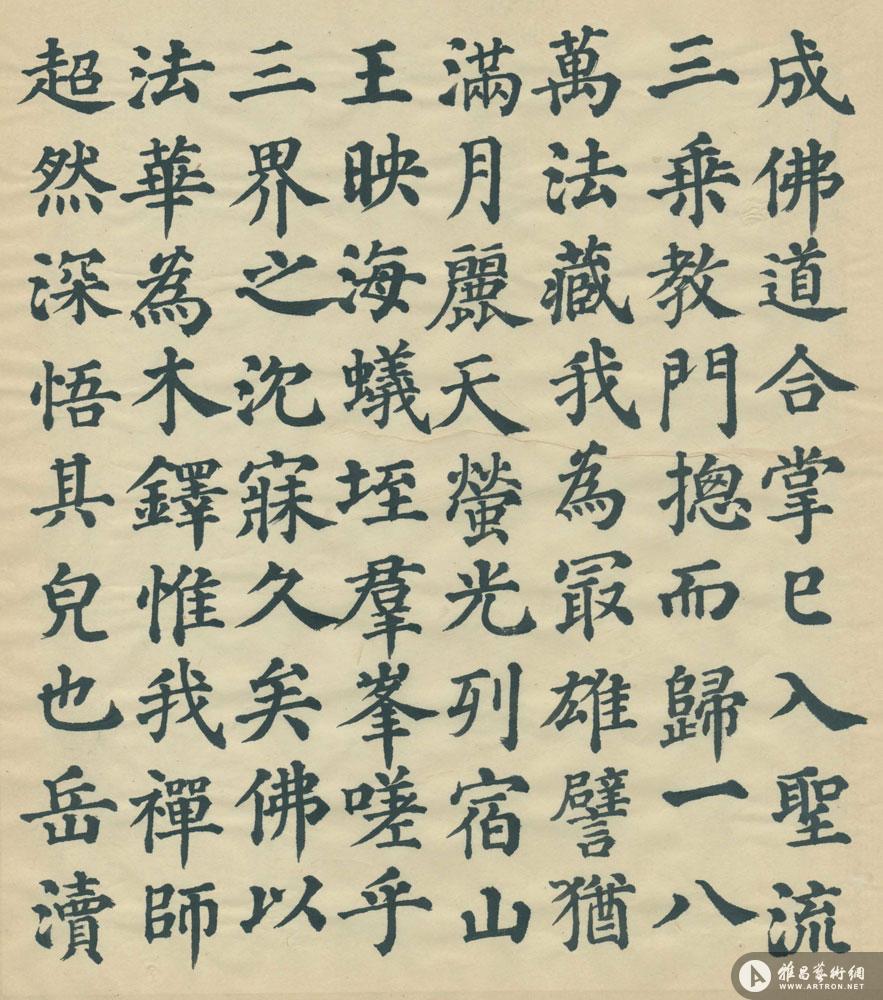 成佛道合掌已入聖流
三乘教門揔而歸一八
萬法藏我為冣雄譬猶
滿月麗天螢光列宿山
王映海蟻垤羣峯嗟乎
三界之沈寐久矣佛以
法華為木鐸惟我禪師
超然深悟其皃也岳瀆
雅昌藝術網
WWW.ARTRON.NET